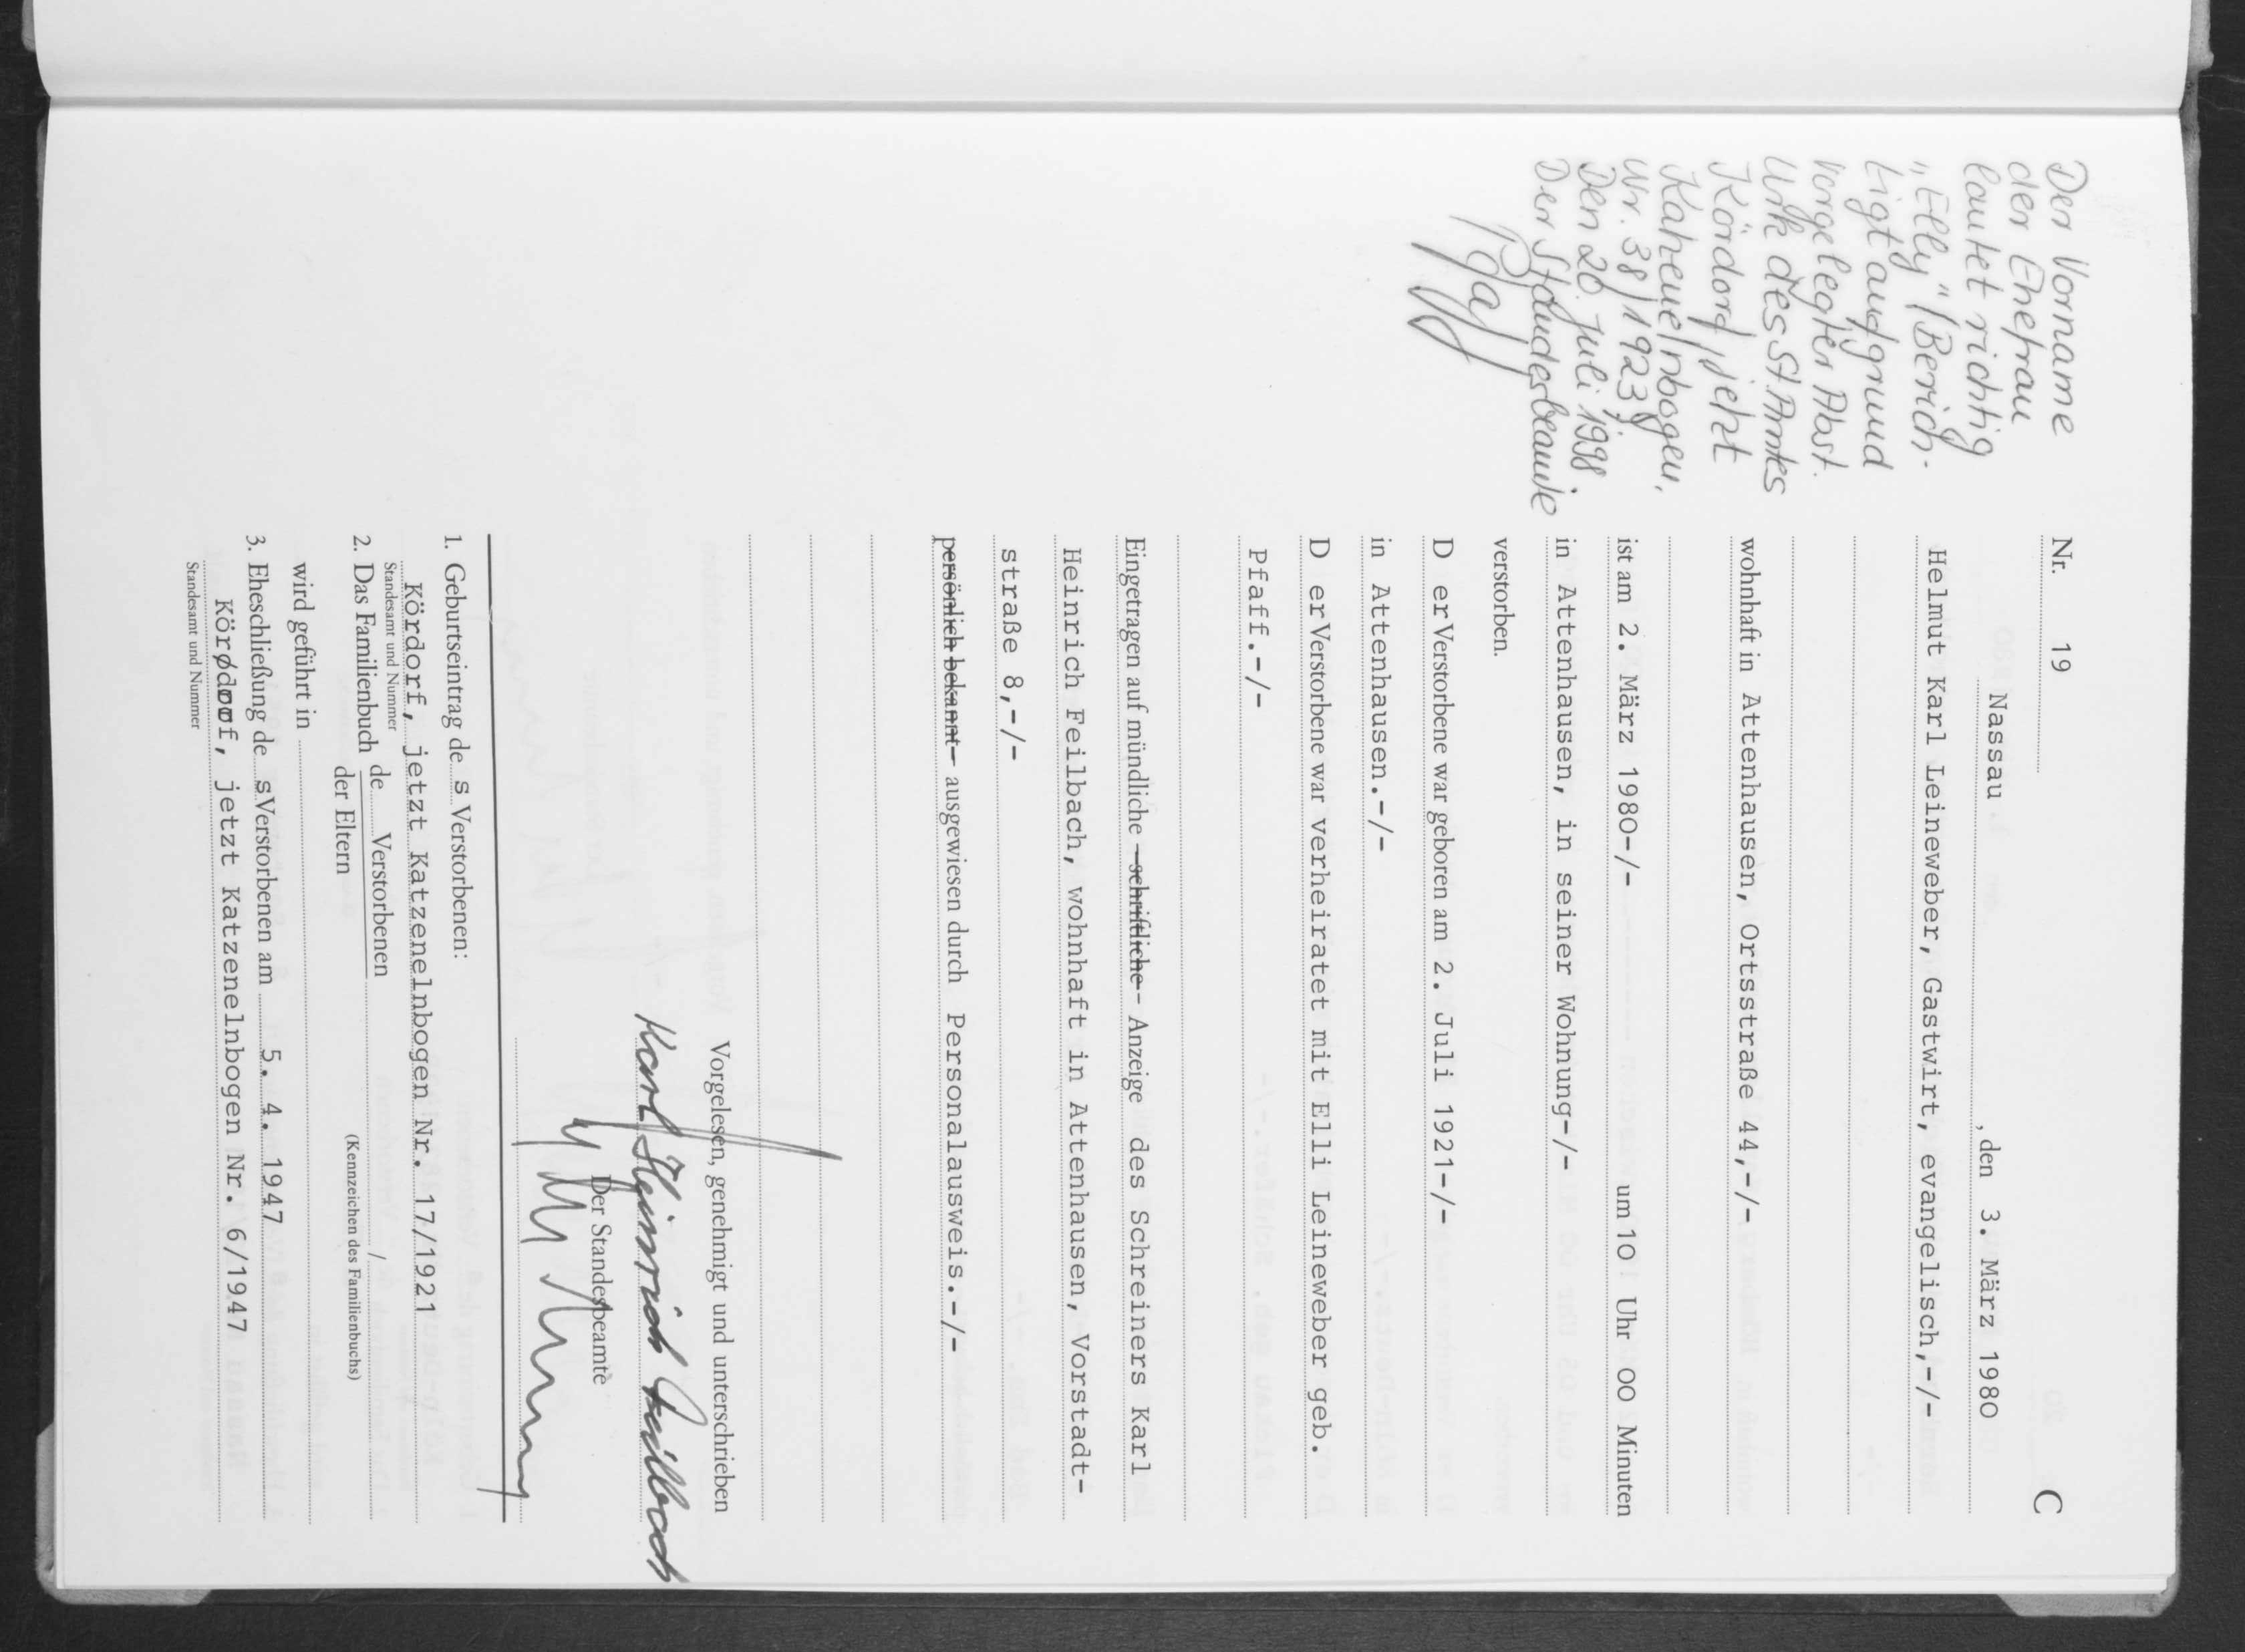 Der Vorname
der Ehefrau
lautet richtig
"Elly" (Berich-
tigt aufgrund
vorgelegter Abst.
Urk des StAmtes
Kördorf jetzt
Katzenelnbogen,
Nr. 38/1923)
Den 20. Juli 1998
Der Standesbeamte
C
Nr. 19
Nassau , den 3. März 1980
Helmut Karl Leineweber, Gastwirt, evangelisch,-/-
wohnhaft in Attenhausen, Ortsstraße 44,-/-
ist am 2. März 1980-/- um 10 Uhr 00 Minuten
in Attenhausen, in seiner Wohnung-/-
verstorben.
D er Verstorbene war geboren am 2. Juli 1921-/-
in Attenhausen.-/-
D er Verstorbene war verheiratet mit Elli Leineweber geb.
Pfaff.-/-
Eingetragen auf mündliche -schriftliche- Anzeige des Schreiners Karl
Heinrich Feilbach, wohnhaft in Attenhausen, Vorstadt-
straße 8,-/-
persönlich bekannt- ausgewiesen durch Personalausweis.-/-
Vorgelesen, genehmigt und unterschrieben
Karl Heinrich Feilbach
Der Standesbeamte
1. Geburtseintrag de s Verstorbenen:
Kördorf, jetzt Katzenelnbogen Nr. 17/1921
Standesamt und Nummer
2. Das Familienbuch de Verstorbenen /
der Eltern (Kennzeichen des Familienbuchs)
wird geführt in
3. Eheschließung de s Verstorbenen am 5. 4. 1947
Kördorf, jetzt Katzenelnbogen Nr. 6/1947
Standesamt und Nummer